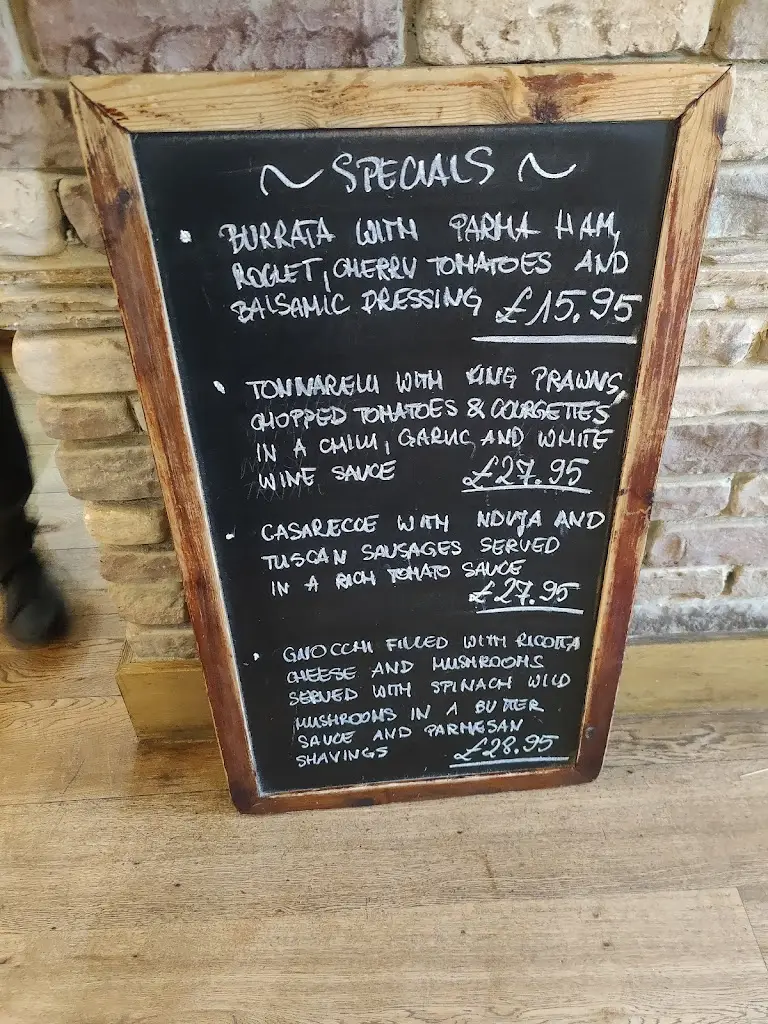 ~ SPECIALS ~
• BURRATA WITH PARMA HAM,
ROCLET, CHERRY TOMATOES AND
BALSAMIC DRESSING £15.95
• TONNARELLI WITH KING PRAWNS,
CHOPPED TOMATOES & COURGETTES
IN A CHILLI, GARLIC AND WHITE
WINE SAUCE £27.95
• CASARECCE WITH NDUJA AND
TUSCAN SAUSAGES SERVED
IN A RICH TOMATO SAUCE
£27.95
• GNOCCHI FILLED WITH RICOTTA
CHEESE AND MUSHROOMS
SERVED WITH SPINACH WILD
MUSHROOMS IN A BUTTER
SAUCE AND PARMESAN
SHAVINGS £28.95